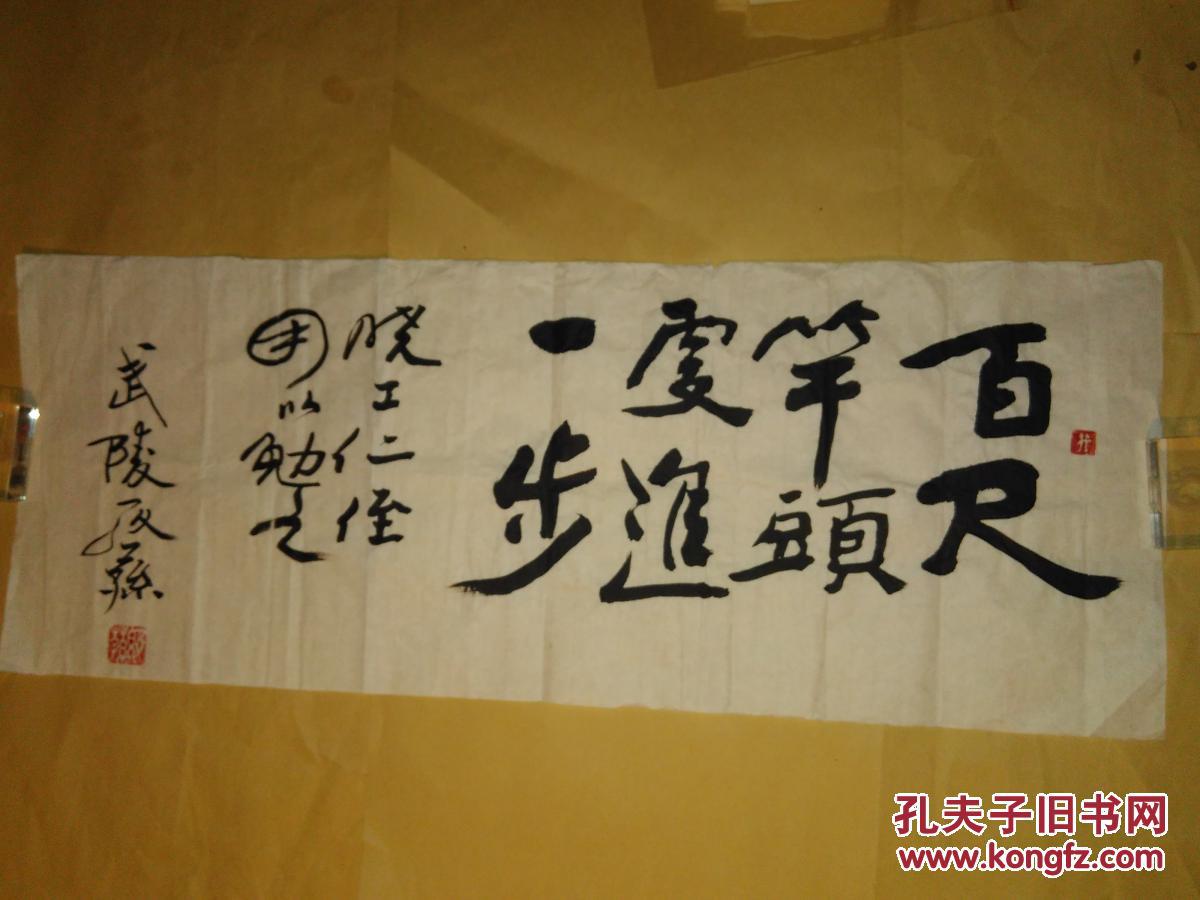 百尺
竿頭
處進
一步
晓工仁侄
因以勉之
武陵
孔夫子旧书网
www.kongfz.com